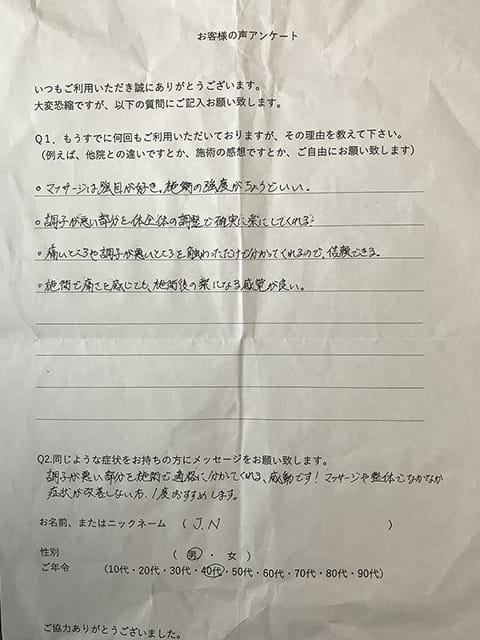 お客様の声アンケート
いつもご利用いただき誠にありがとうございます。
大変恐縮ですが、以下の質問にご記入お願い致します。
Q1．もうすでに何回もご利用いただいておりますが、その理由を教えて下さい。
（例えば、他院との違いですとか、施術の感想ですとか、ご自由にお願い致します）
○マッサージは強目が好き。施術の強度がちょうどいい。
○調子が悪い部分を体全体の調整で確実に楽にしてくれる?
○痛いところや調子が悪いところを触わっただけで分かってくれるので、信頼できる。
○施術で痛さを感じても、施術後の楽になる感覚が良い。
Q2.同じような症状をお持ちの方にメッセージをお願い致します。
調子が悪い部分を施術で適格に分かってくれる、感動です！マッサージや整体でなかなか
症状が改善しない方、1度おすすめします。
お名前、またはニックネーム （ J.N ）
性別 （ 男 ・ 女 ）
ご年令 （10代・20代・30代・40代・50代・60代・70代・80代・90代）
ご協力ありがとうございました。